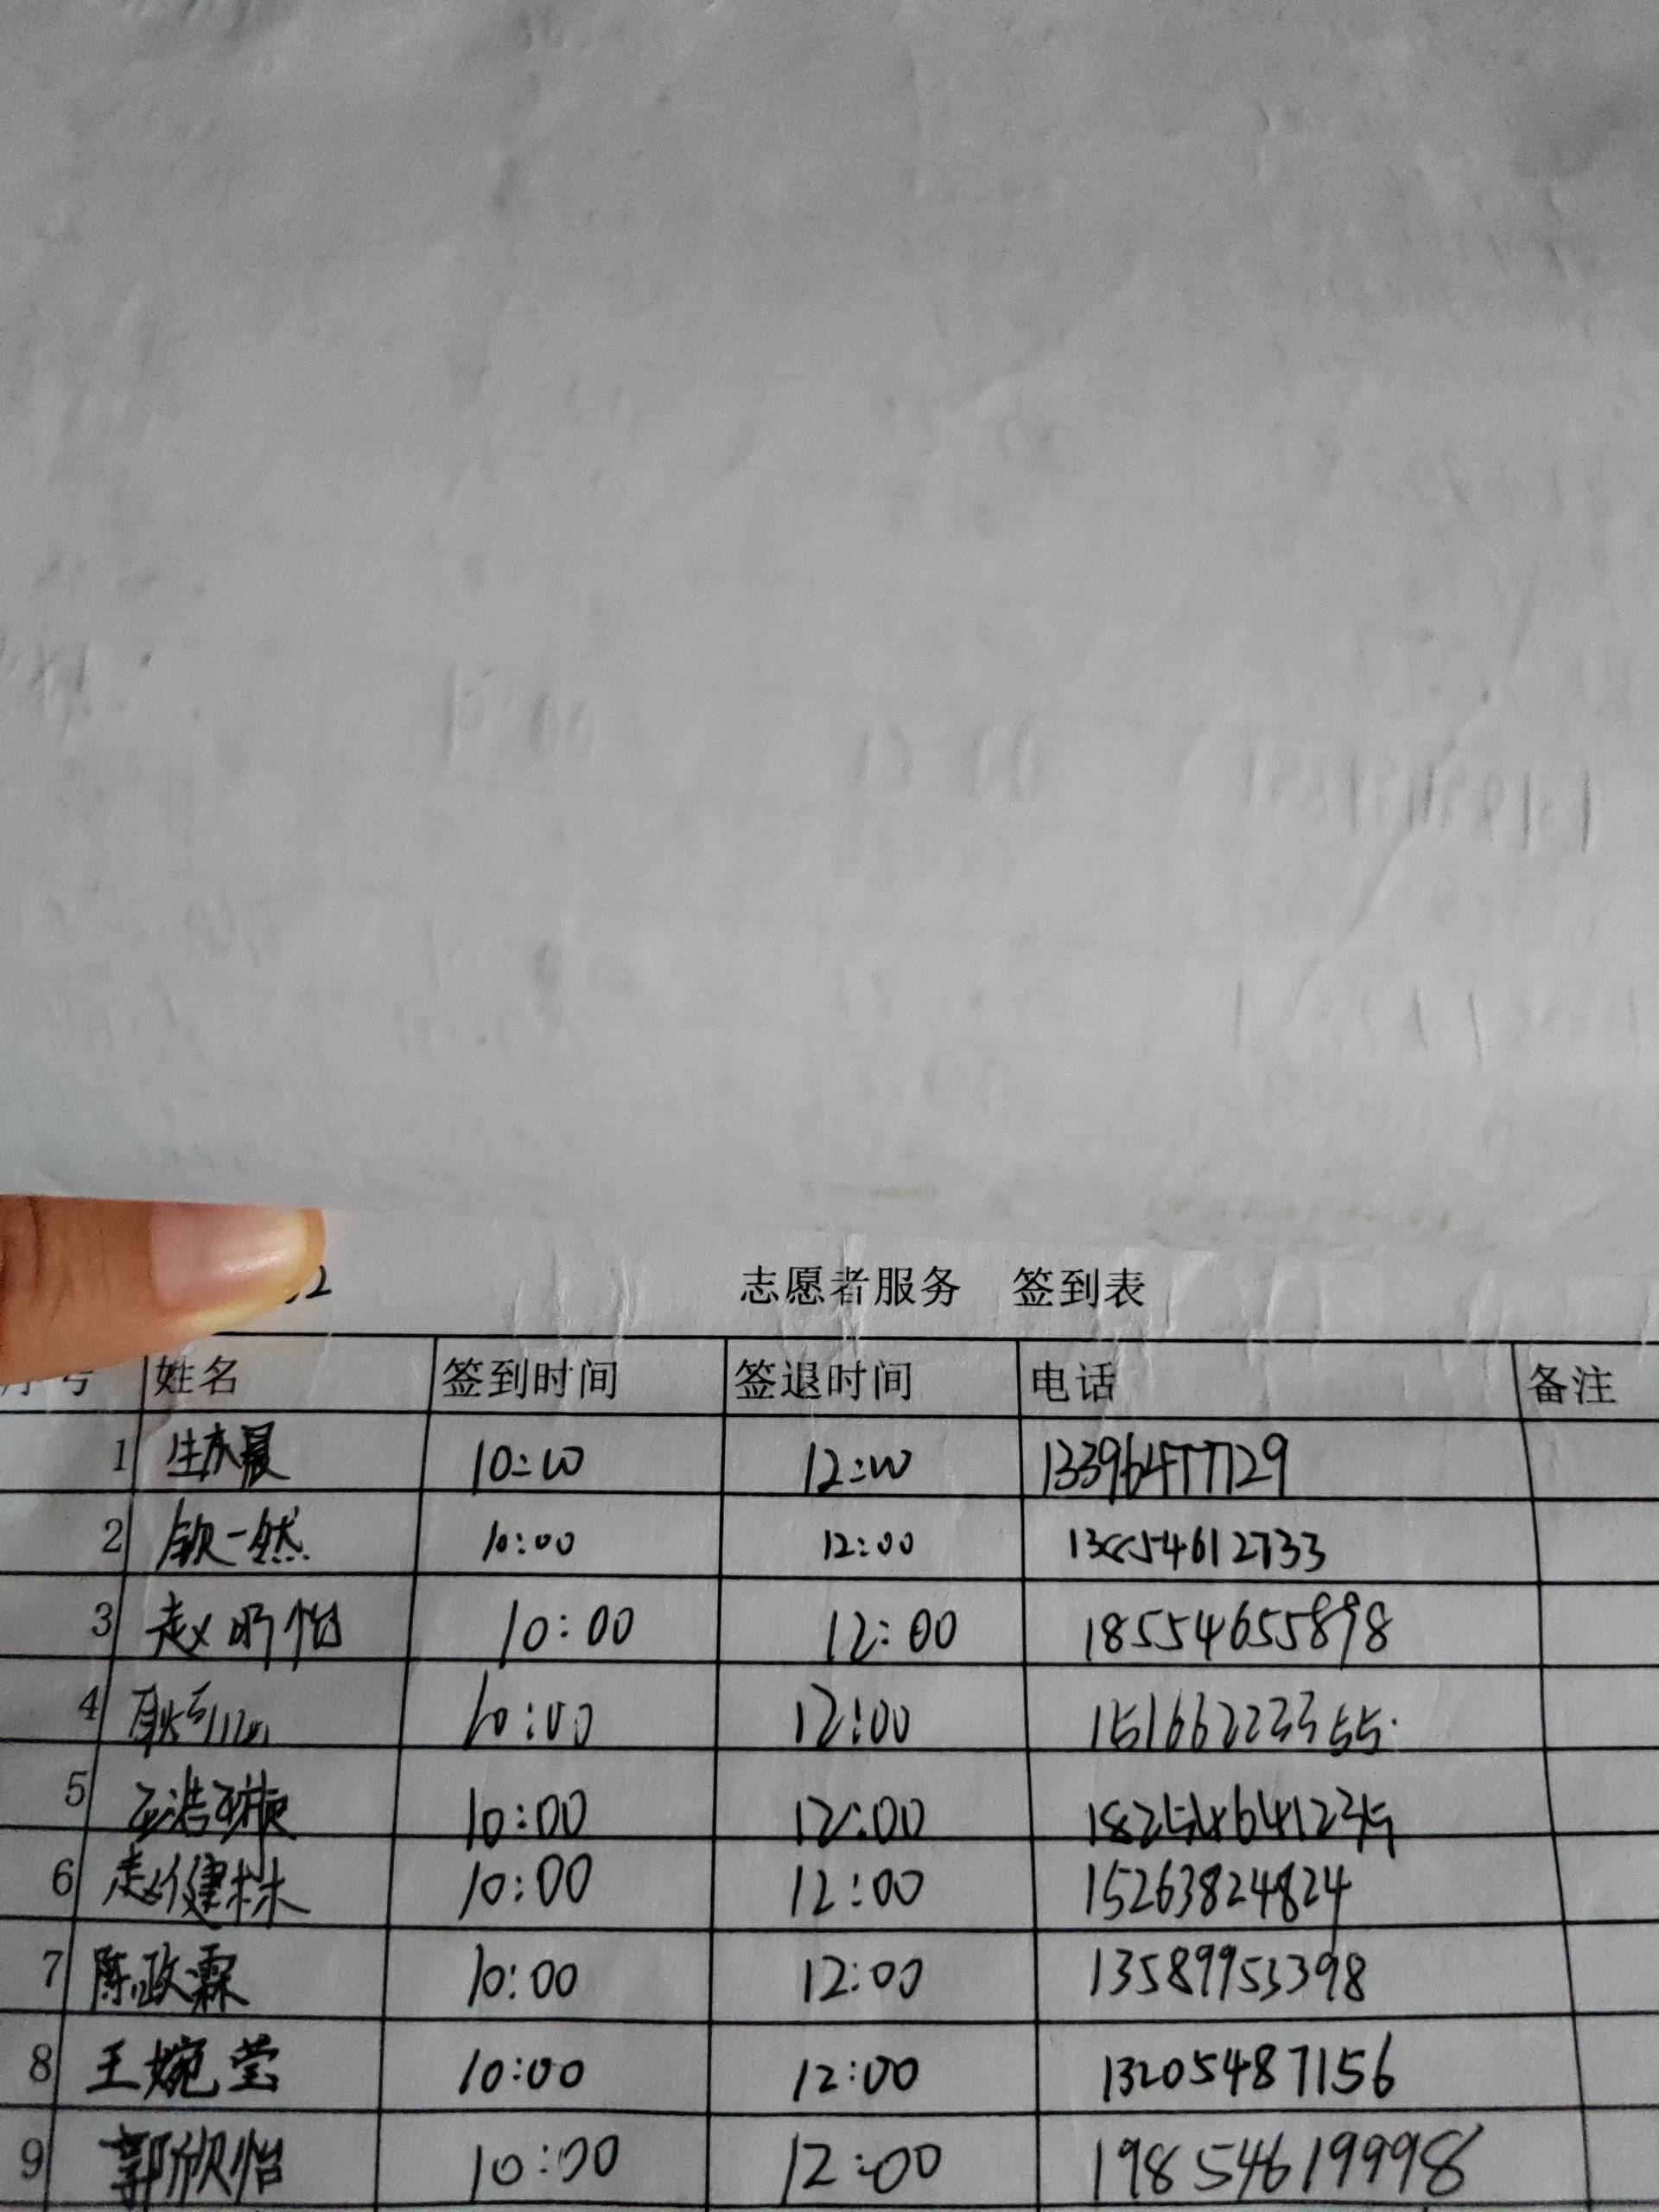 志愿者服务 签到表
姓名 签到时间 签退时间 电话 备注
1 10:00 12:00 13396477729
2 钦一然 10:00 12:00 13854612733
3 赵明怡 10:00 12:00 18554655898
4 10:00 12:00 15166223355
5 10:00 12:00
6 赵健林 10:00 12:00 15263824824
7 陈政霖 10:00 12:00 13589953398
8 王婉莹 10:00 12:00 13205487156
9 郭欣怡 10:00 12:00 19854619998